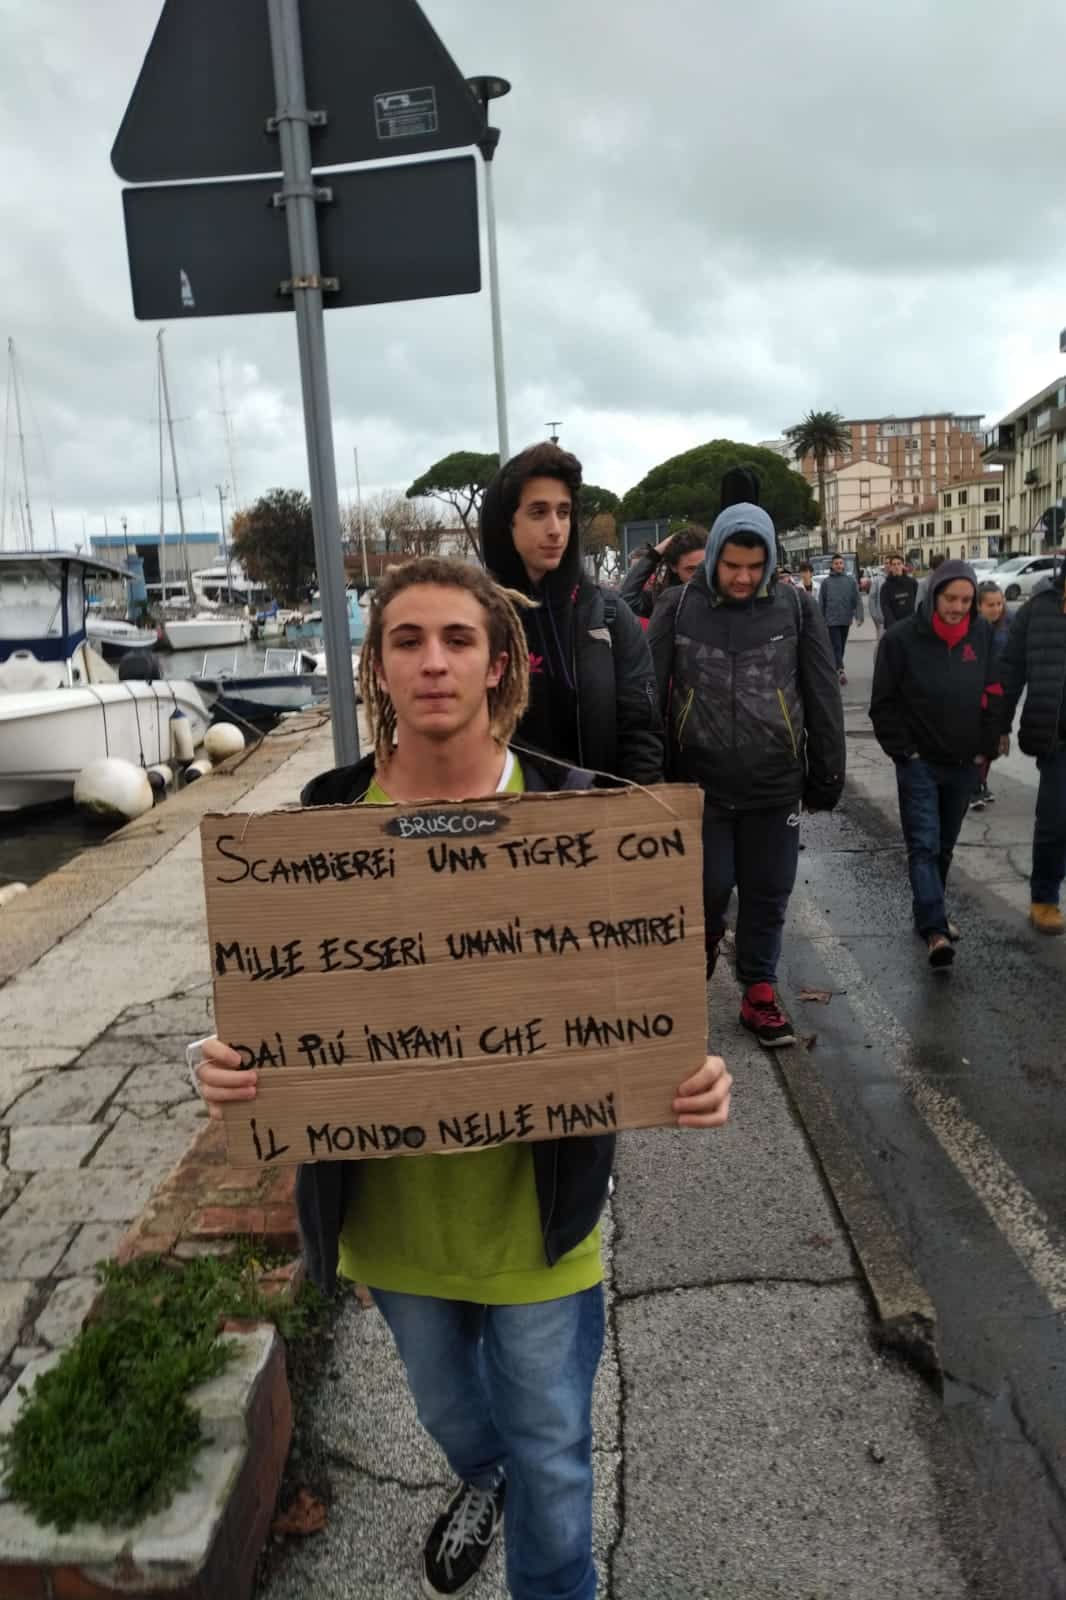 BRUSCO~
SCAMBiEREi UNA TiGRE CON
MiLLE ESSERi UMANi MA PARTIREi
DAi PiÚ iNFAMi CHE HANNO
iL MONDO NELLE MANi